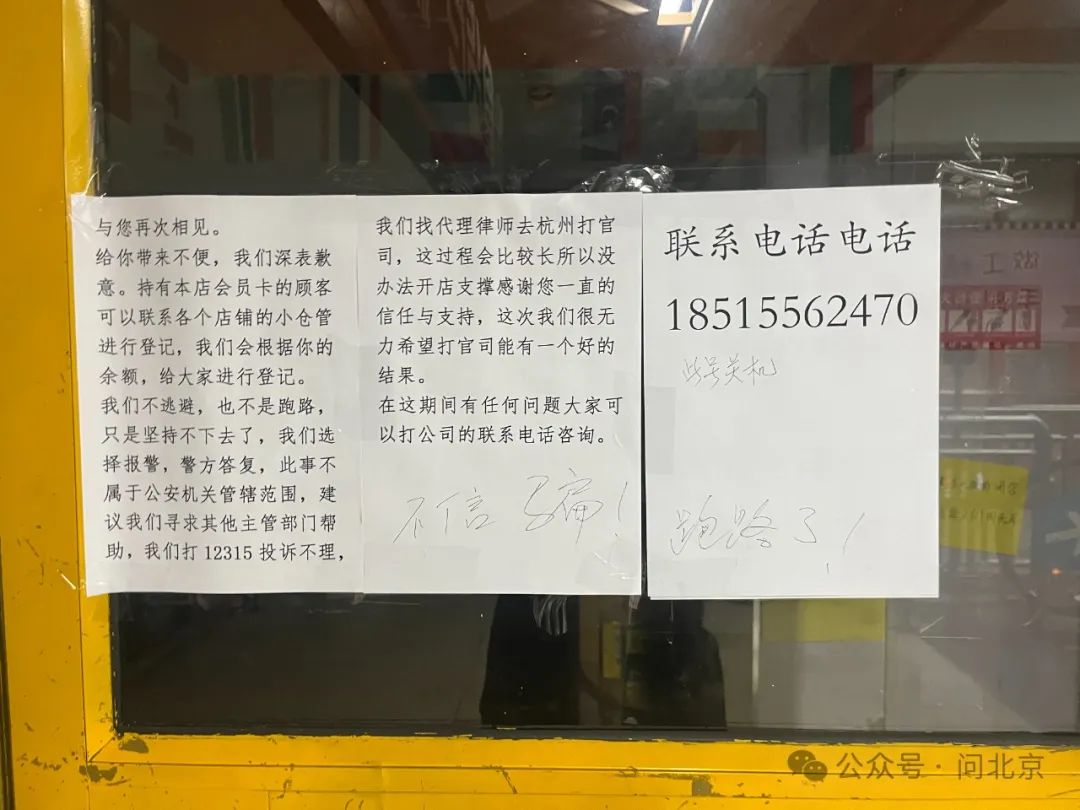 与您再次相见。
给你带来不便，我们深表歉
意。持有本店会员卡的顾客
可以联系各个店铺的小仓管
进行登记，我们会根据你的
余额，给大家进行登记。
我们不逃避，也不是跑路，
只是坚持不下去了，我们选
择报警，警方答复，此事不
属于公安机关管辖范围，建
议我们寻求其他主管部门帮
助，我们打 12315 投诉不理，
我们找代理律师去杭州打官
司，这过程会比较长所以没
办法开店支撑感谢您一直的
信任与支持，这次我们很无
力希望打官司能有一个好的
结果。
在这期间有任何问题大家可
以打公司的联系电话咨询。
不信 骗！
联系电话电话
18515562470
此号关机
跑路了！
公众号·问北京